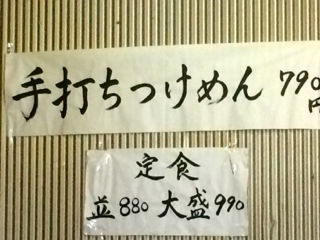 手打ちつけめん 790円
定食
並 880 大盛 990